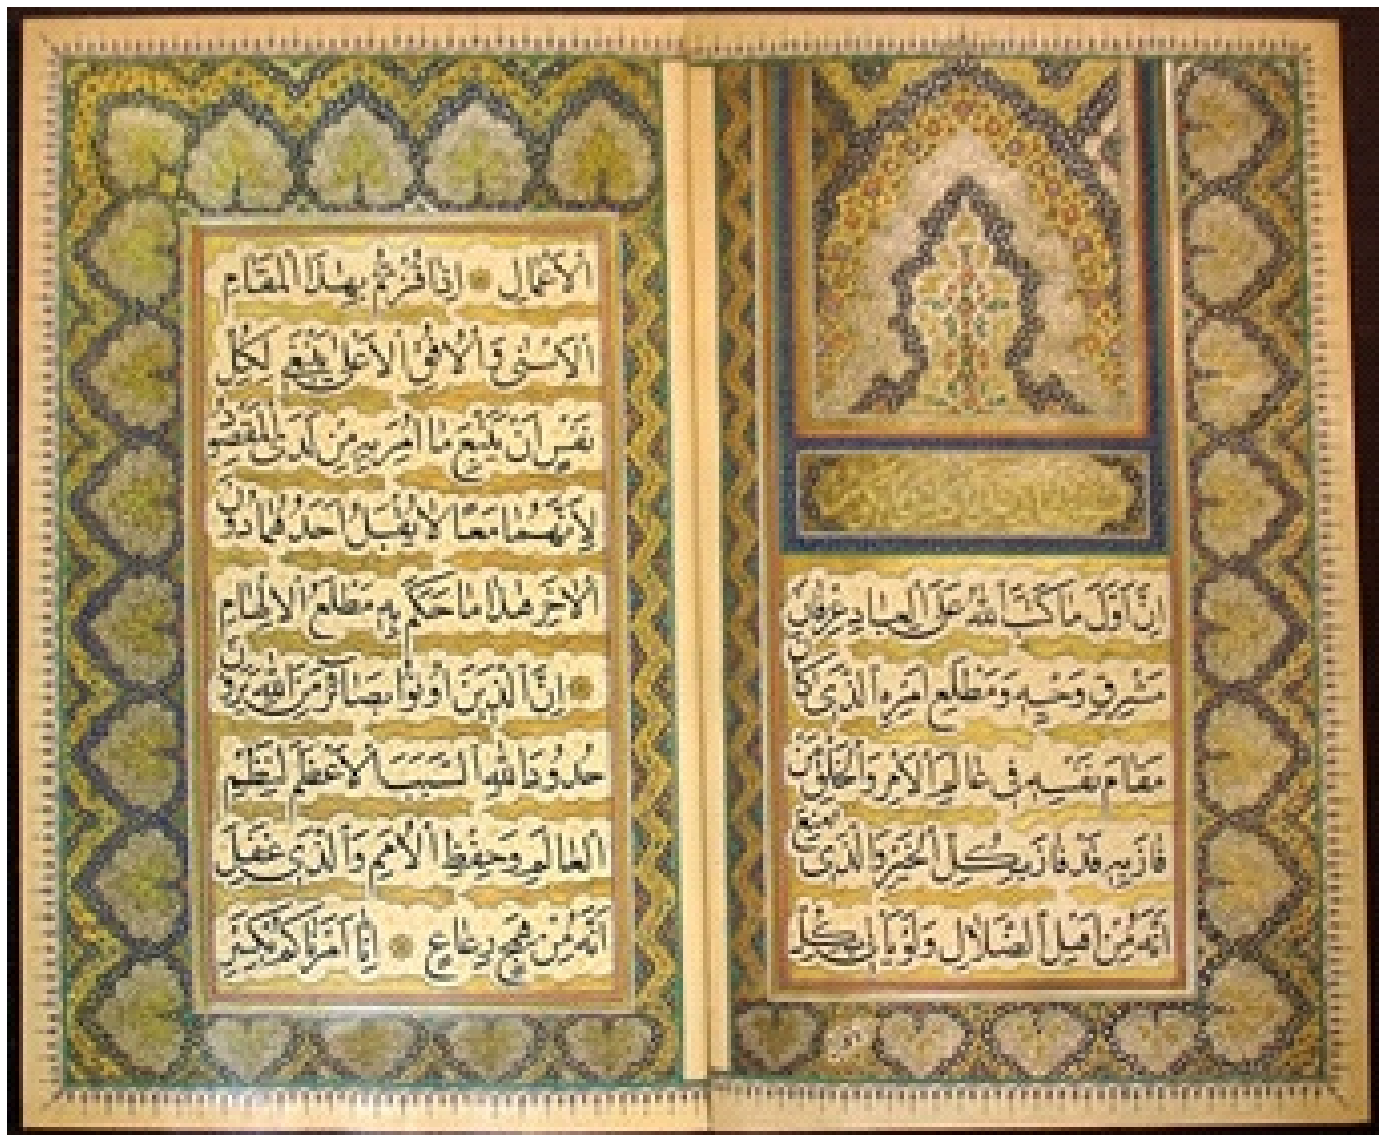 اِنَّ اَوَّلَ مَا كَتَبَ ٱللّٰهُ عَلَى ٱلْعِبَادِ عِرْفَانُ
مَشْرِقِ وَحْيِهِ وَمَطْلَعِ اَمْرِهِ ٱلَّذِى كَانَ
مَقَامَ نَفْسِهِ فِى عَالَمِ ٱلْاَمْرِ وَٱلْخَلْقِ مَنْ
فَازَ بِهِ قَدْ فَازَ بِكُلِّ ٱلْخَيْرِ وَٱلَّذِى مُنِعَ
اَنَّهُ مِنْ اَهْلِ ٱلضَّلَالِ وَلَوْ يَأْتِى بِكُلِّ
ٱلْاَعْمَالِ ۞ اِذَا فُزْتُمْ بِهٰذَا ٱلْمَقَامِ
ٱلْاَسْنٰى وَٱلْاُفُقِ ٱلْاَعْلٰى يَنْبَغِى لِكُلِّ
نَفْسٍ اَنْ يَتَّبِعَ مَا اُمِرَ بِهِ مِنْ لَدَى ٱلْمَقْصُودِ
لِاَنَّهُمَا مَعًا لَا يُقْبَلُ اَحَدُهُمَا دُونَ
ٱلْآخَرِ هٰذَا مَا حَكَمَ بِهِ مَطْلَعُ ٱلْاِلْهَامِ
۞ اِنَّ ٱلَّذِينَ اُوتُوا بَصَائِرَ مِنَ ٱللّٰهِ يَرَوْنَ
حُدُودَ ٱللّٰهِ ٱلسَّبَبَ ٱلْاَعْظَمَ لِنَظْمِ
ٱلْعَالَمِ وَحِفْظِ ٱلْاُمَمِ وَٱلَّذِى غَفَلَ
اَنَّهُ مِنْ هَمَجٍ رِعَاعٍ ۞ اِنَّا اَمَرْنَاكُمْ بِكَسْرِ